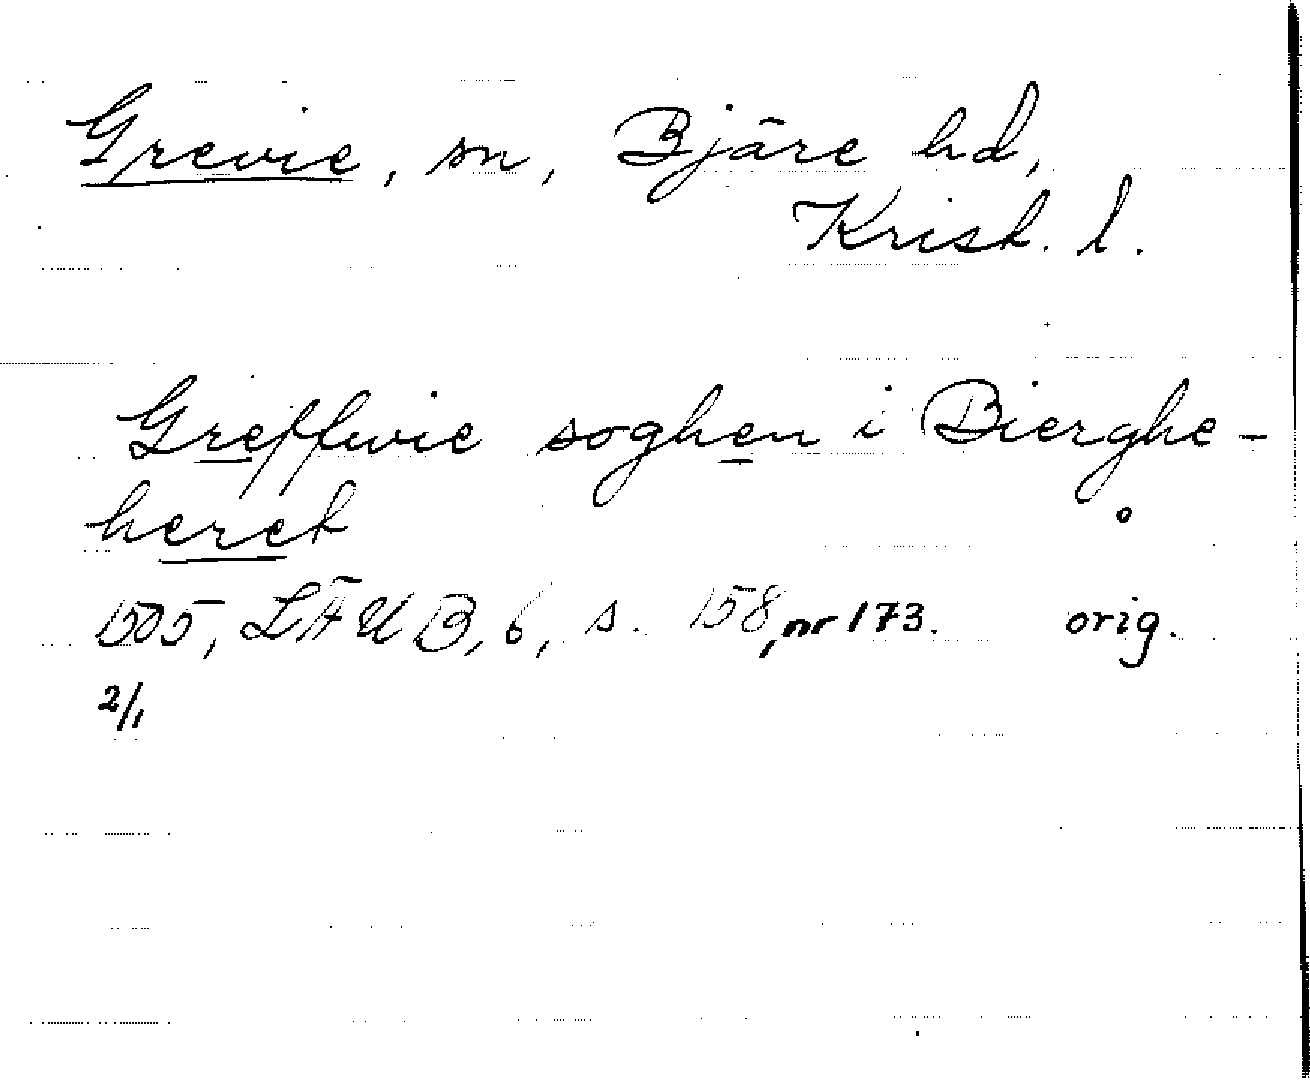 Grevie, sn, Bjäre hd,
Krist. l.
Greffwie soghen i Bierghe-
heret
1505, LÄUB, 6, s. 158, nr 173. orig.
2/1